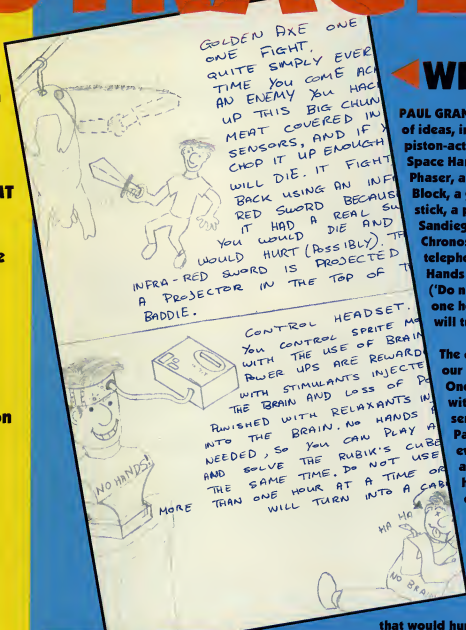 GOLDEN AXE ONE
ONE FIGHT.
QUITE SIMPLY EVER
TIME YOU COME AC
AN ENEMY YOU HAC
UP THIS BIG CHUN
MEAT COVERED IN
SENSORS, AND IF Y
CHOP IT UP ENOUGH
WILL DIE. IT FIGHT
BACK USING AN INF
RED SWORD BECAUS
IT HAD A REAL SW
YOU WOULD DIE AND
WOULD HURT (POSSIBLY). TH
INFRA-RED SWORD IS PROJECTED
A PROJECTOR IN THE TOP OF T
BADDIE.
CONTROL HEADSET.
YOU CONTROL SPRITE MO
WITH THE USE OF BRAIN
POWER UPS ARE REWARD
WITH STIMULANTS INJECTE
THE BRAIN AND LOSS OF PO
PUNISHED WITH RELAXANTS IN
INTO THE BRAIN. NO HANDS
NEEDED, SO YOU CAN PLAY A
AND SOLVE THE RUBIK'S CUBE
THE SAME TIME. DO NOT USE
MORE THAN ONE HOUR AT A TIME OR
WILL TURN INTO A CAB
NO HANDS!
HA HA
NO BRA
WI
PAUL GRAN
of ideas, in
piston-act
Space Har
Phaser, a
Block, a
stick, a
Sandieg
Chrono
telepho
Hands
('Do n
one h
will t
The
our
One
wit
ser
Pa
ev
a
h
that would hur
NT
e
on